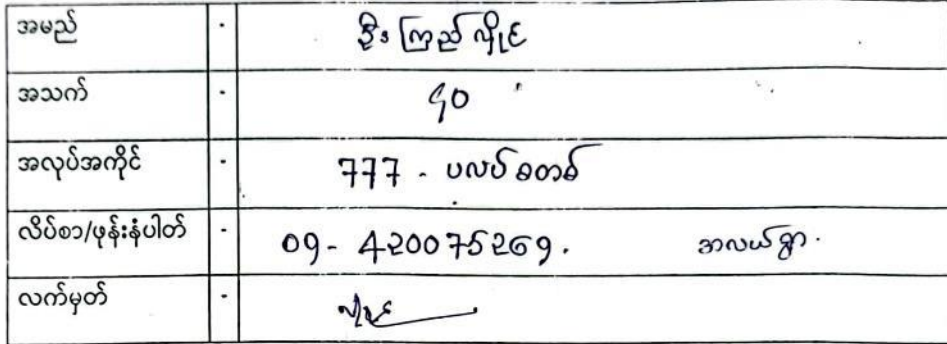 အမည် - ဦးကြည်လှိုင်
အသက် - ၄၀
အလုပ်အကိုင် - 777 - ပလပ်စတစ်
လိပ်စာ/ဖုန်းနံပါတ် - 09- 420075269. အလယ်ရွာ.
လက်မှတ် -